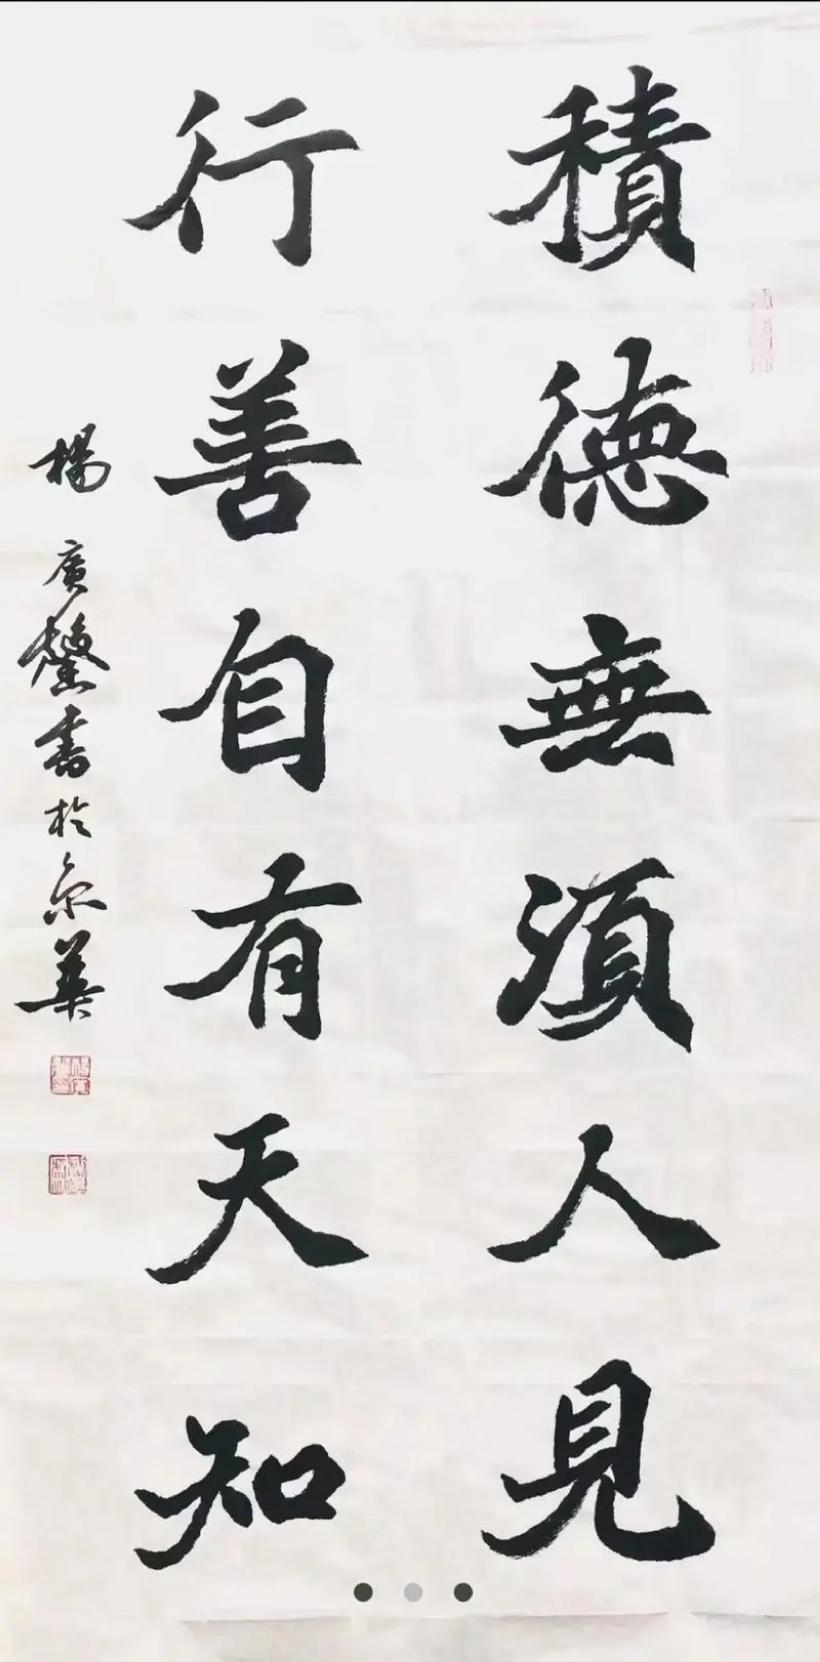 積德無須人見
行善自有天知
楊廣馨書於京華